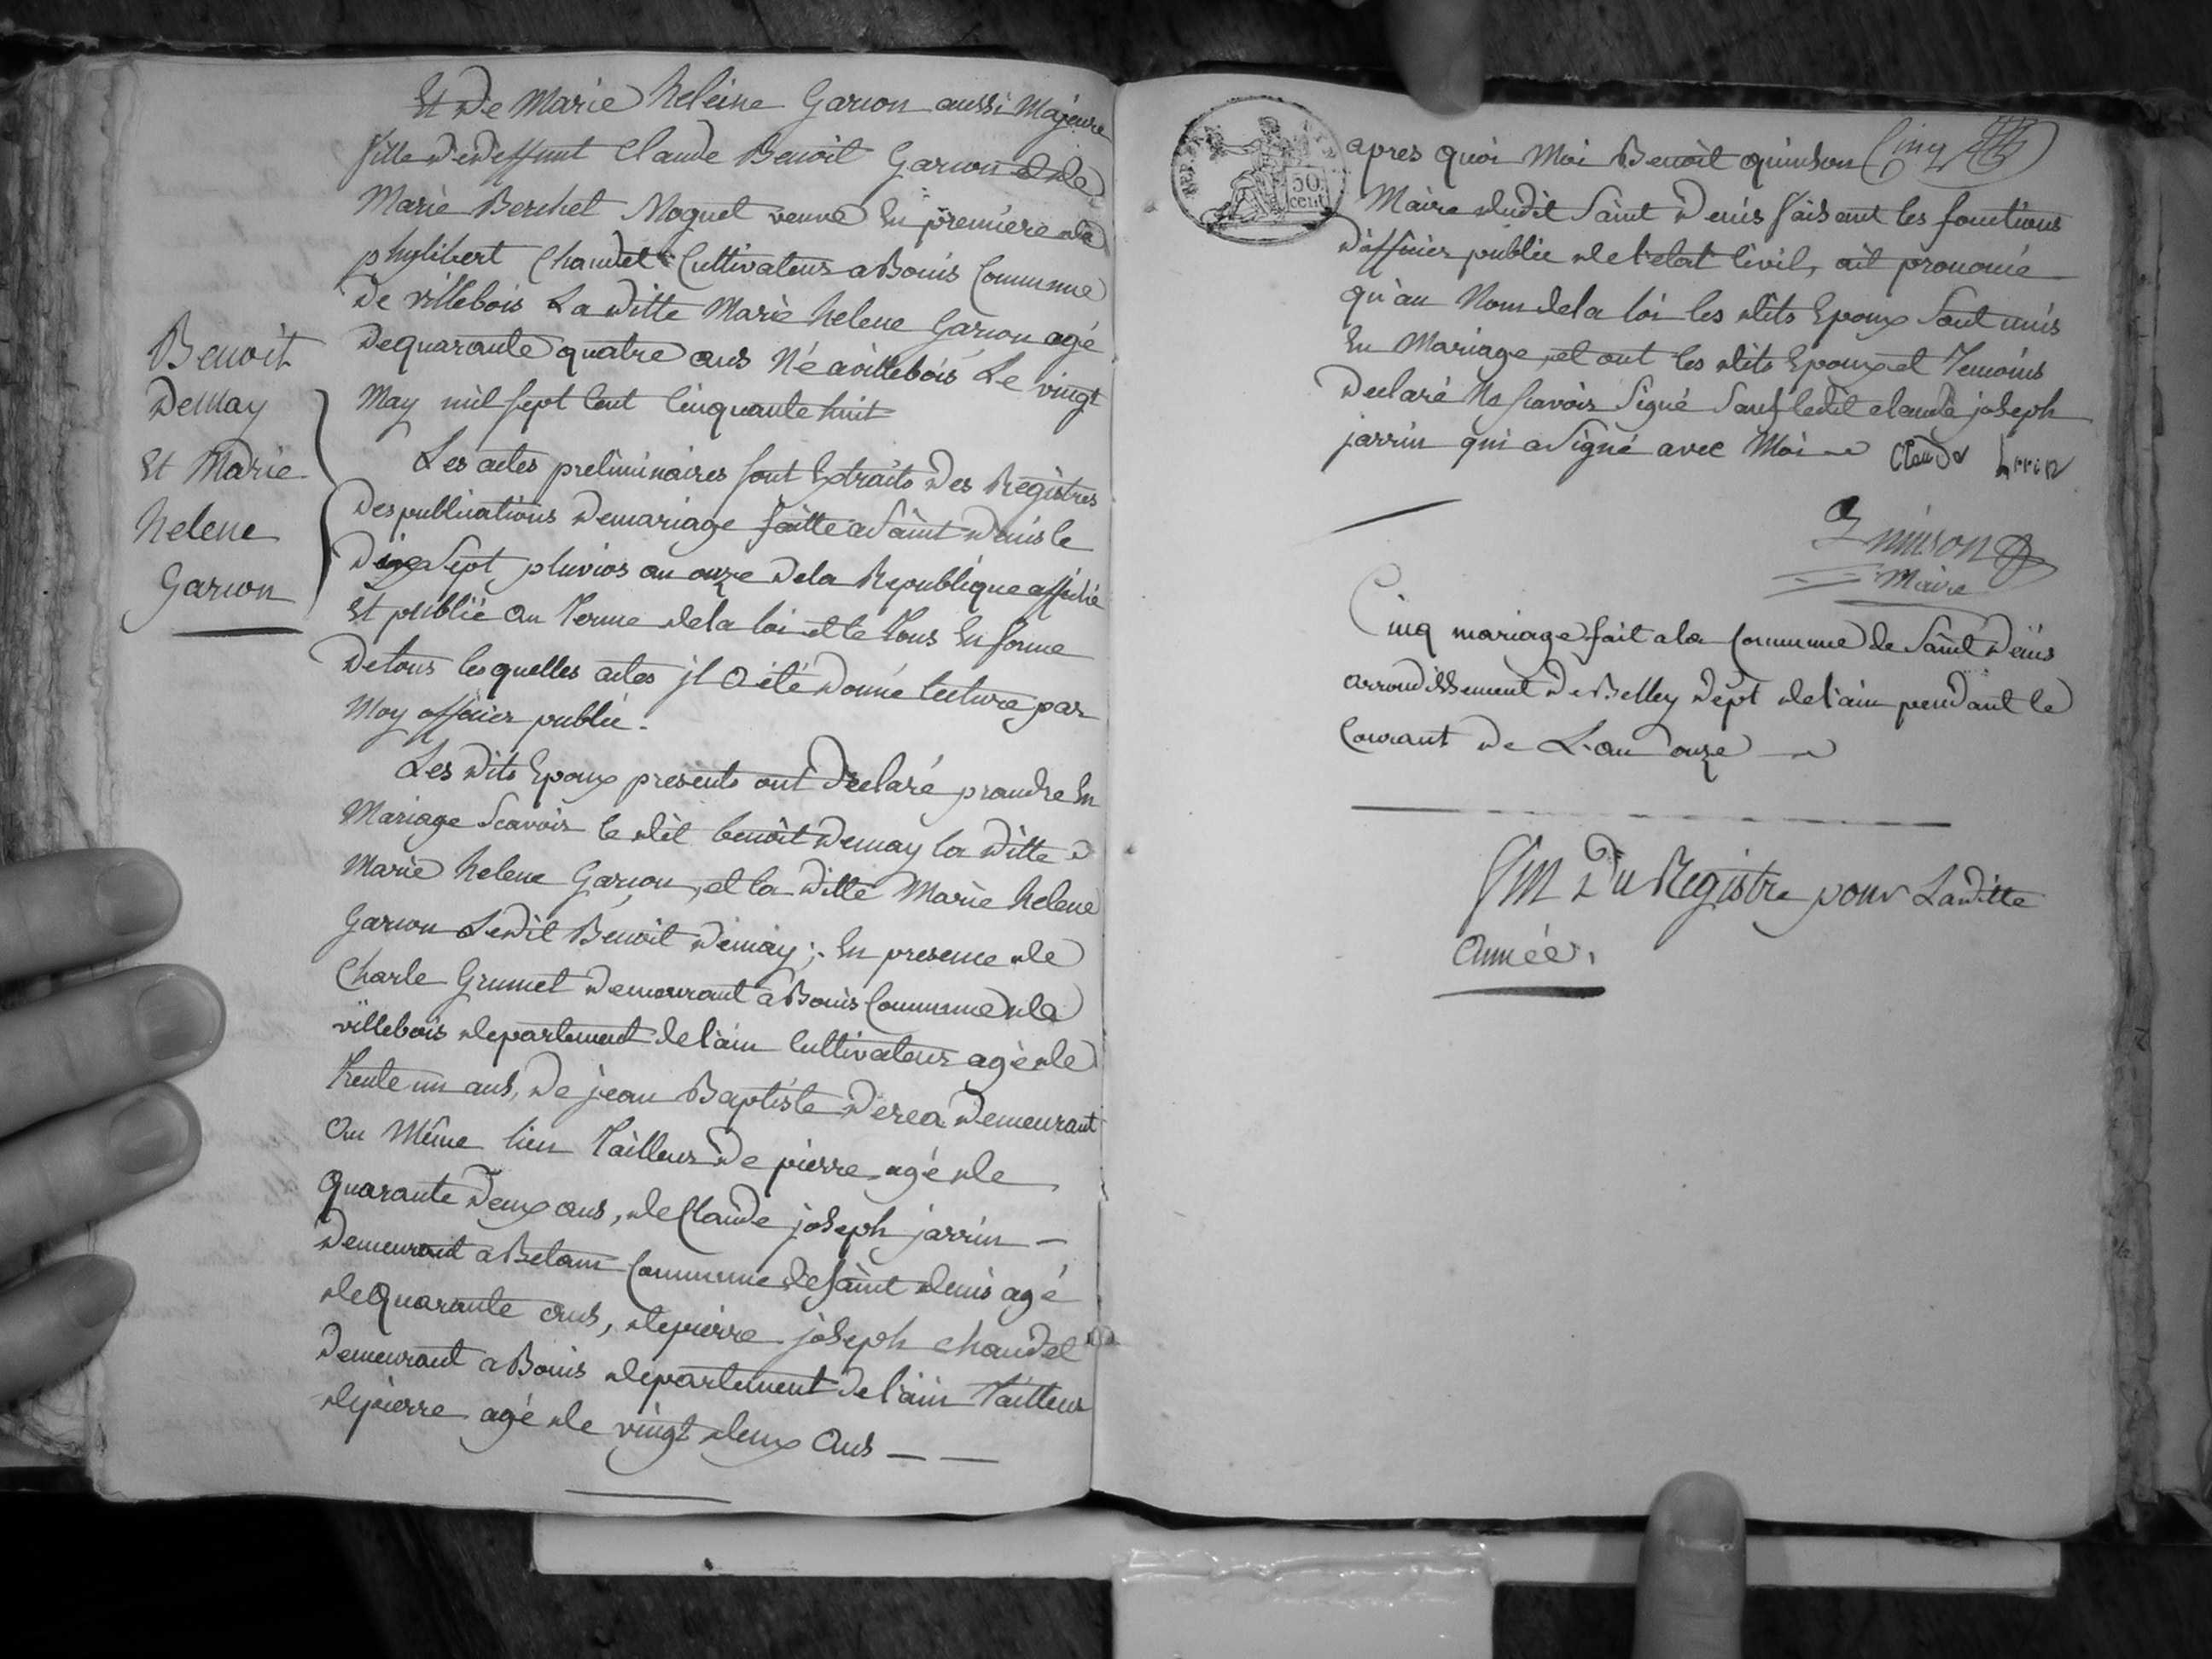 Et de Marie heleine Garion aussi Majeure
fille de deffunt Claude Benoit Garion et de
Marie Berchet Noguet veuve En premiere de
phylibert Chaudet Cultivateur a Bouis Commune
de villebois La ditte Marie helene Garion agé
de quarante quatre ans Né a villebois Le vingt
May mil sept Cent Cinquante huit
Benoit
Demay
Et Marie
helene
Garion
Les actes preliminaires sont Extraits des Registres
des publications de mariage faitte a Saint denis le
dixe Sept pluvios an onze de la Republique affiché
Et publié au Terme de la loi et le Tous En forme
de tous lesquelles actes jl a été donné lecture par
Moy officier public.
Les dits Epoux presents ont declaré prandre En
Mariage Scavoir le dit benoit demay la ditte
Marie helene Garion, et la ditte Marie helene
Garion Ledit Benoit demay; En presence de
Charle Grumet demeurant a Bouis Commune de
villebois departement de l'ain Cultivateur agé de
Trente un ans, de jean Baptiste derea demeurant
au Même lieu Tailleur de pierre agé de
quarante deux ans, de Claude joseph jarrin —
demeurant a Belam Commune de Saint denis agé
de quarante ans, de pierre joseph chaudet
demeurant a Bouis departement de l'ain Tailleur
de pierre agé de vingt deux ans — —
50
cent
apres quoi Moi Benoit quinson Cinq
Maire dudit Saint Denis faisant les fonctions
d'officier public de l'etat Civil, ait prononcé
qu'au Nom de la loi les dits Epoux sont unis
En Mariage, et ont les dits Epoux et Temoins
declaré Ne scavoir Signé Sauf ledit claude joseph
jarrin qui a Signé avec Moi
Claude
Quinson
Maire
Cinq mariage fait a la Commune de Saint Denis
arrondissement de Belley dept de l'ain pendant le
Courant de L'an onze
fin du Registre pour Laditte
Année.